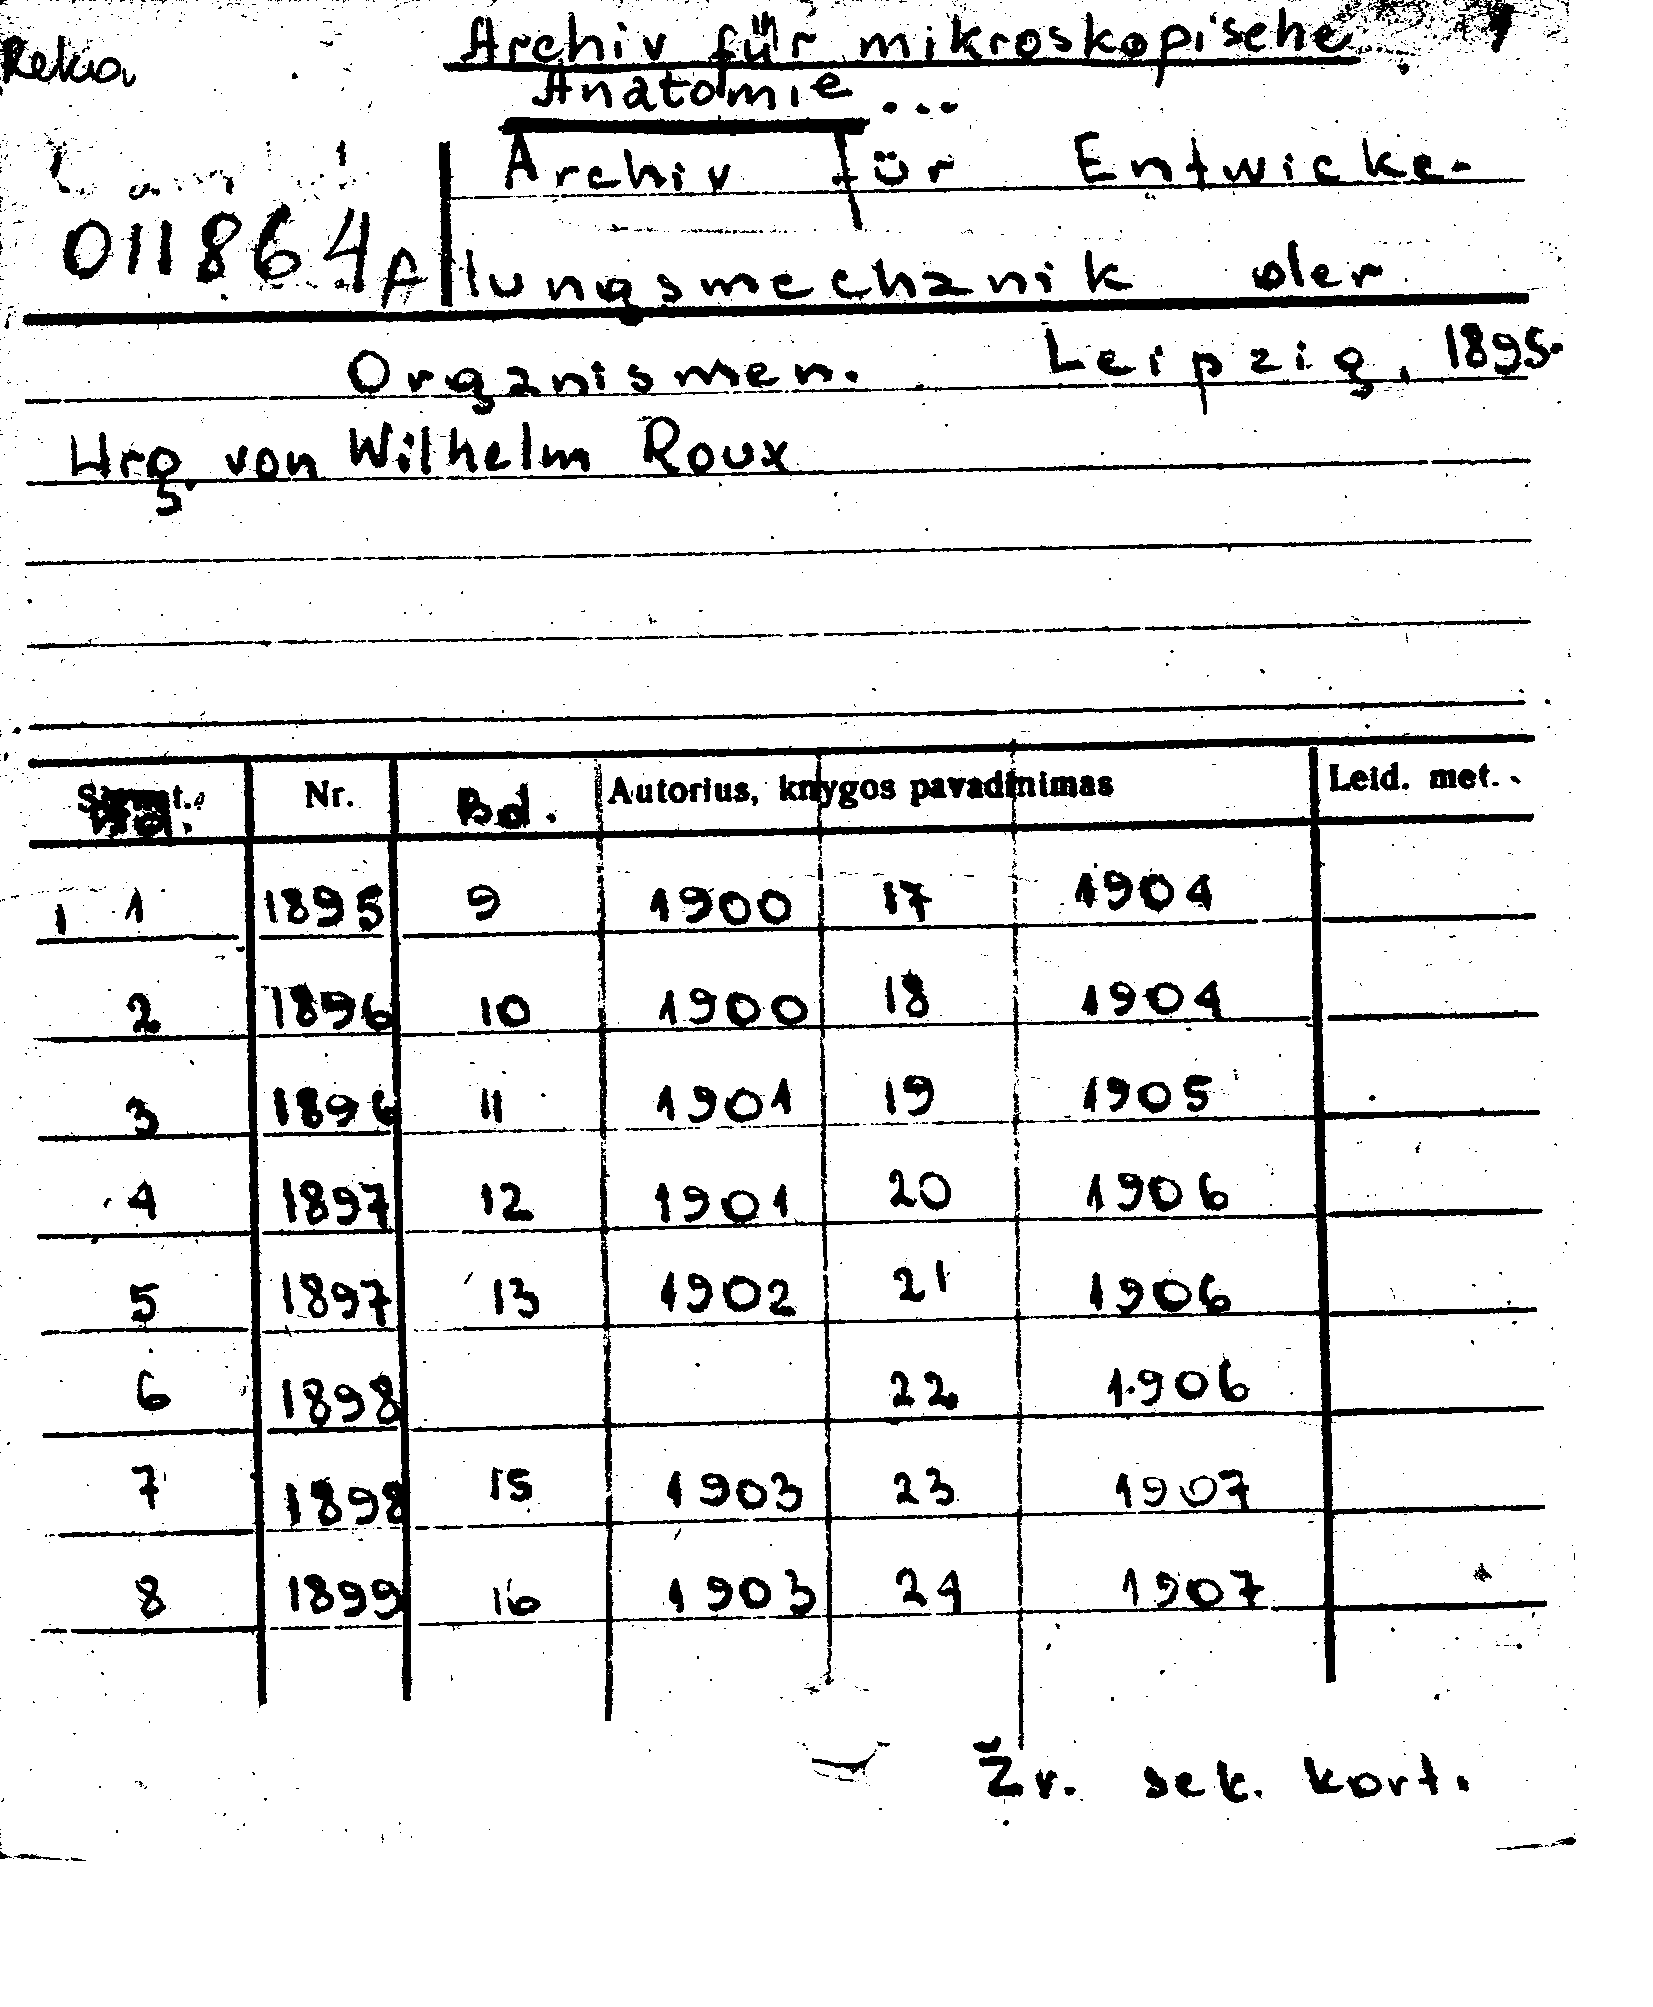 Archiv für mikroskopische
Anatomie ...
Archiv für Entwicke-
011864 A lungsmechanik der
Organismen. Leipzig, 1895.
Hrg. von Wilhelm Roux
Nr. Bd. Autorius, knygos pavadinimas Leid. met.
1 1895 9 1900 17 1904
2 1896 10 1900 18 1904
3 1896 11 1901 19 1905
4 1897 12 1901 20 1906
5 1897 13 1902 21 1906
6 1898 22 1906
7 1898 15 1903 23 1907
8 1899 16 1903 24 1907
Žr. sek. kort.